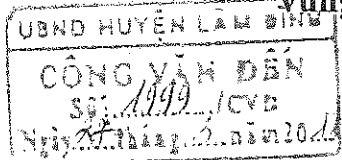 UBND HUYỆN LÂM BÌNH
CÔNG VĂN ĐẾN
Số: 1999 /CVĐ
Ngày 27 tháng 2 năm 201